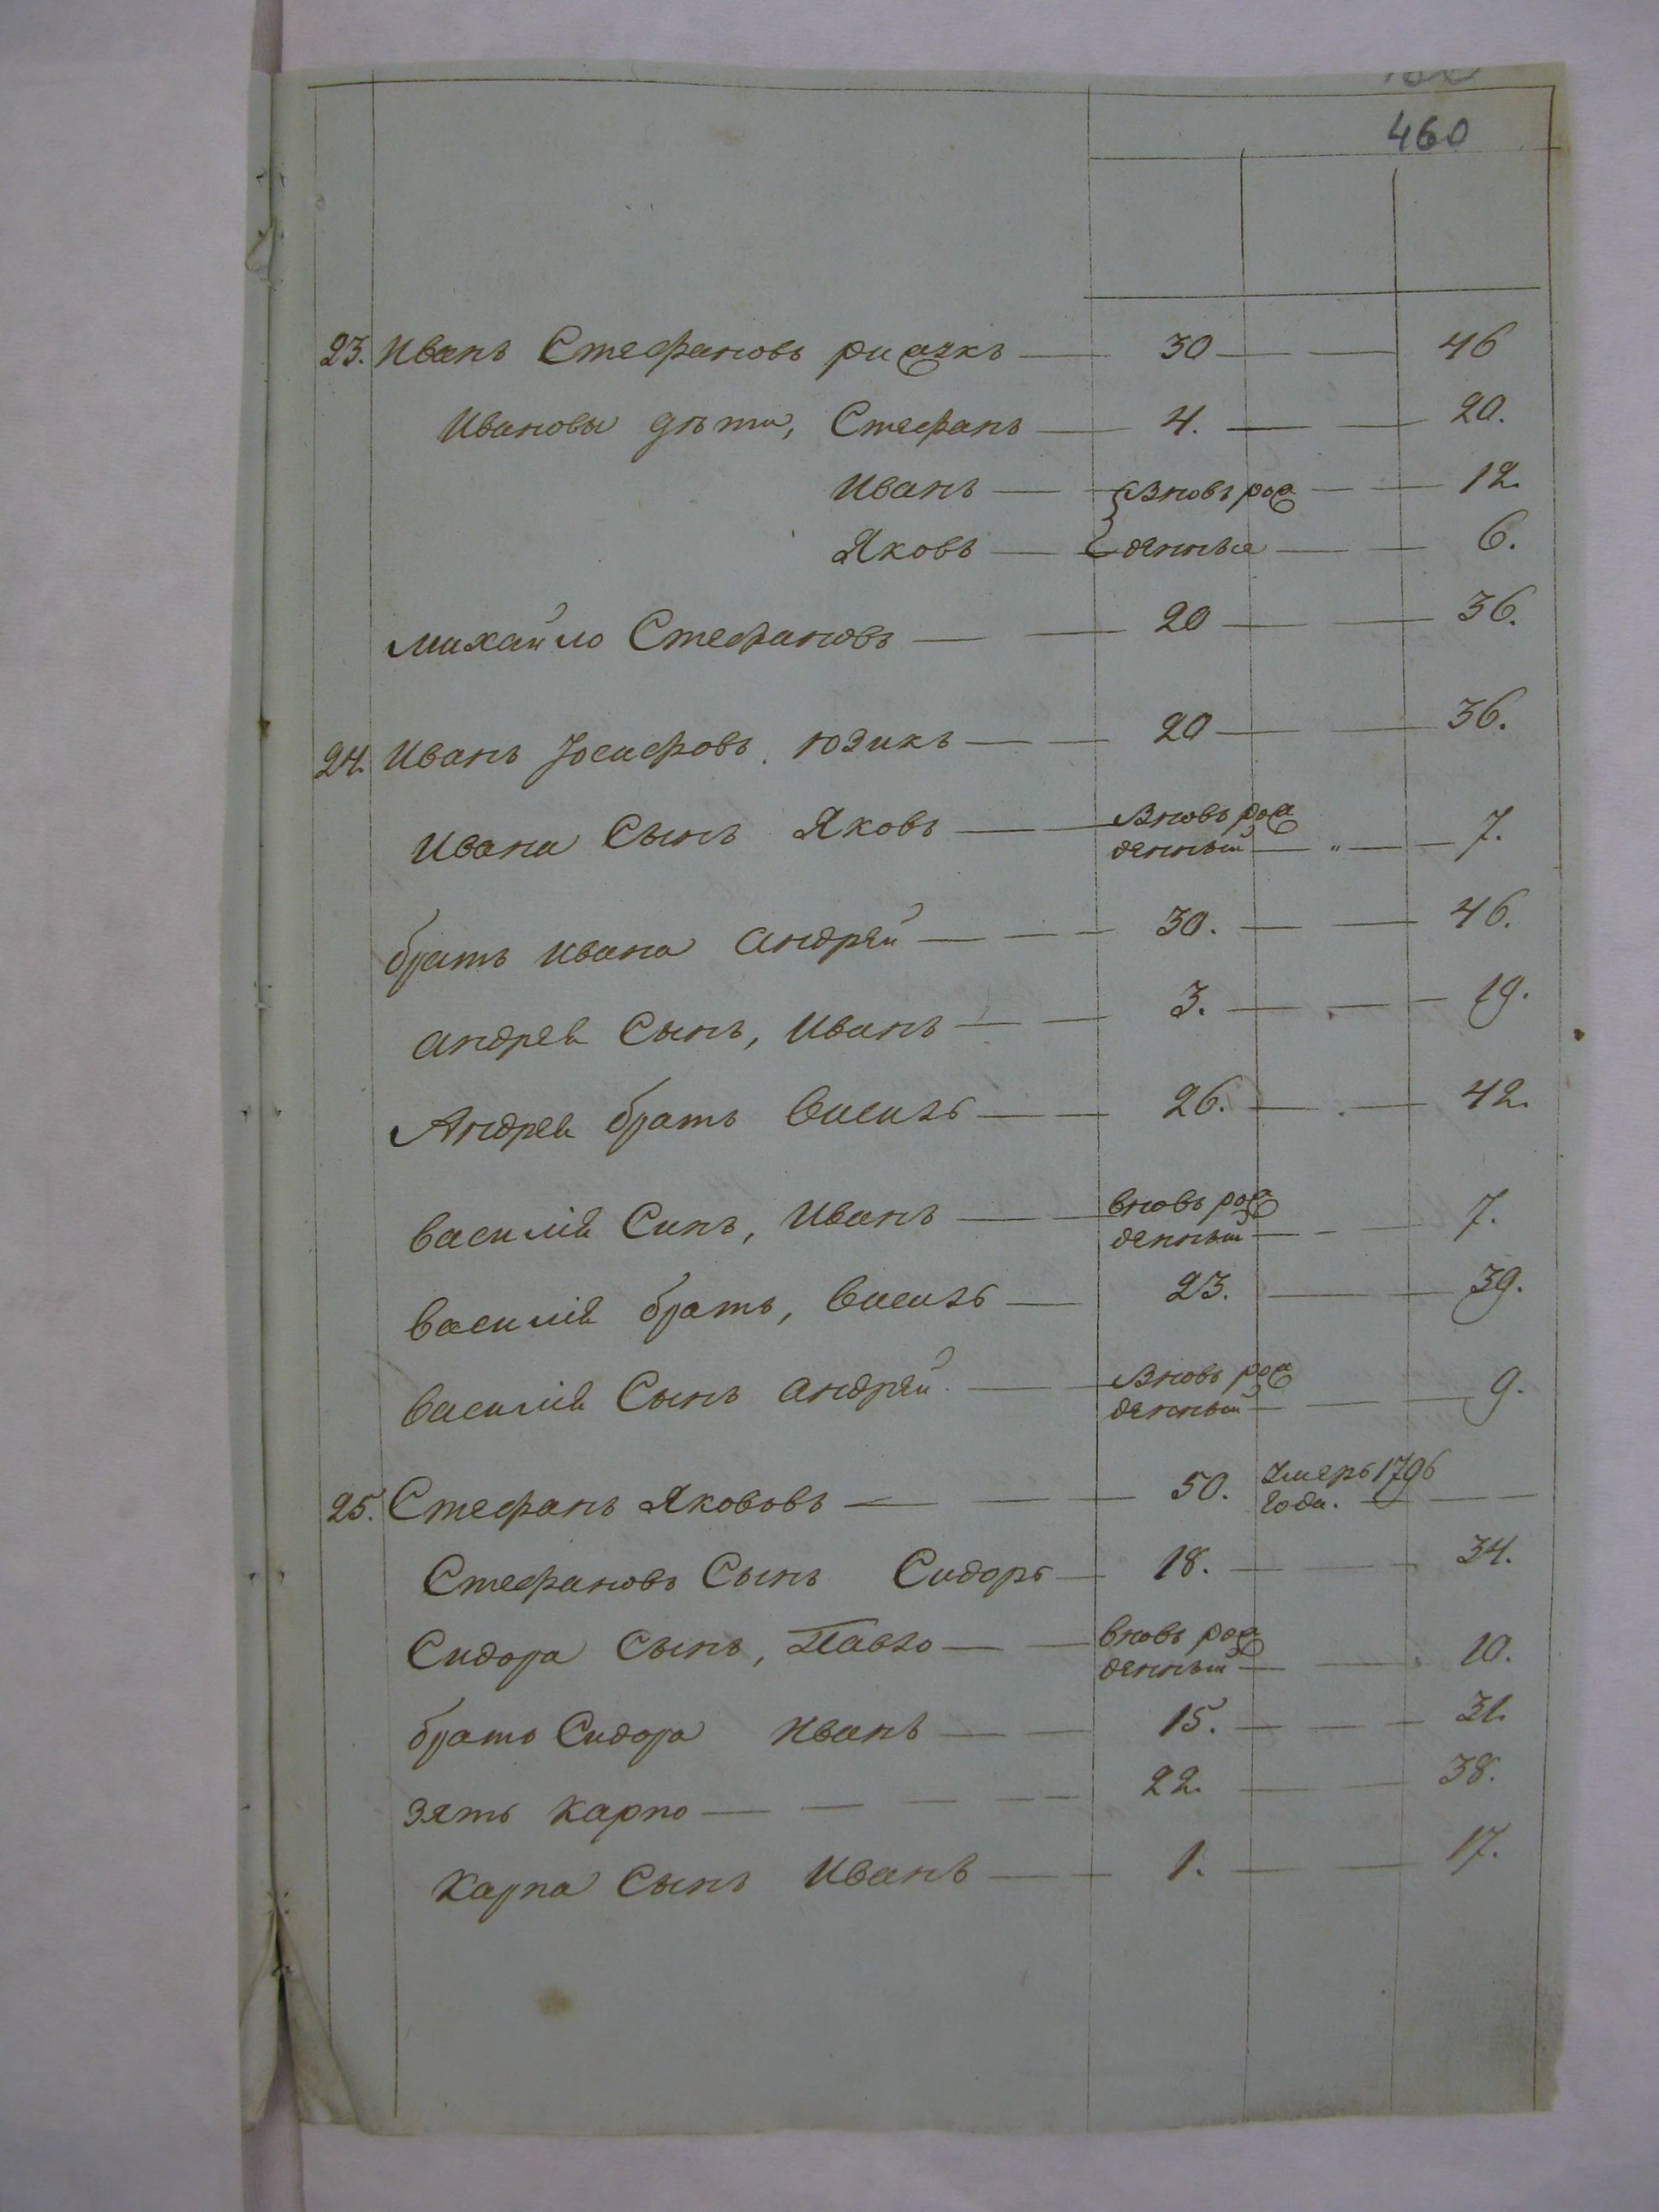 460
23. Иванъ Стефановъ — 30 — — 46
Ивановы дѣти, Стефанъ — 4. — — 20.
Иванъ — вновь рож — — 12.
Яковъ — денные — — 6.
Михайло Стефановъ — — 20 — — 36.
24. Иванъ Іосифовъ Юзикъ — — 20 — — 36.
Ивана Сынъ Яковъ — вновь рож
денный — „ — 7.
братъ Ивана Андрей — — 30. — — 46.
Андрея Сынъ, Иванъ — — 3. — — 19.
Андрея братъ Василь — — 26. — — 42.
Василія Синъ, Иванъ — вновь рож
денный — — 7.
Василія братъ, Василь — 23. — — 39.
Василія Сынъ Андрей — вновь рож
денный — — 9.
25. Стефанъ Якововъ — — — 50. Умеръ 1796
года. — —
Стефановъ Сынъ Сидоръ — 18. — — 34.
Сидора Сынъ, Павло — — вновь рож
денный — — 10.
братъ Сидора Иванъ — — 15. — — 31.
зять Карпо — — — — 22. — — 38.
Карпа Сынъ Иванъ — — 1. — — 17.